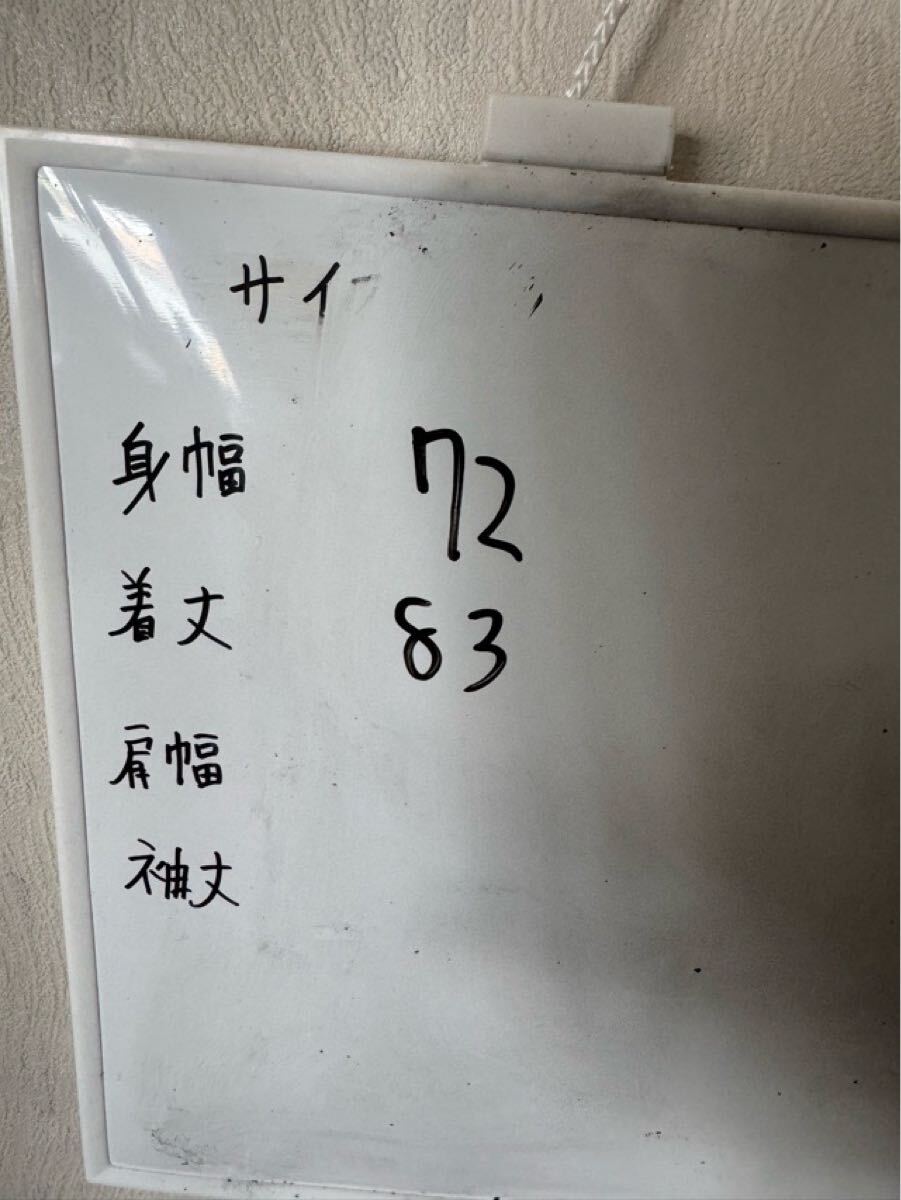 サイ
身幅 72
着丈 83
肩幅
袖丈